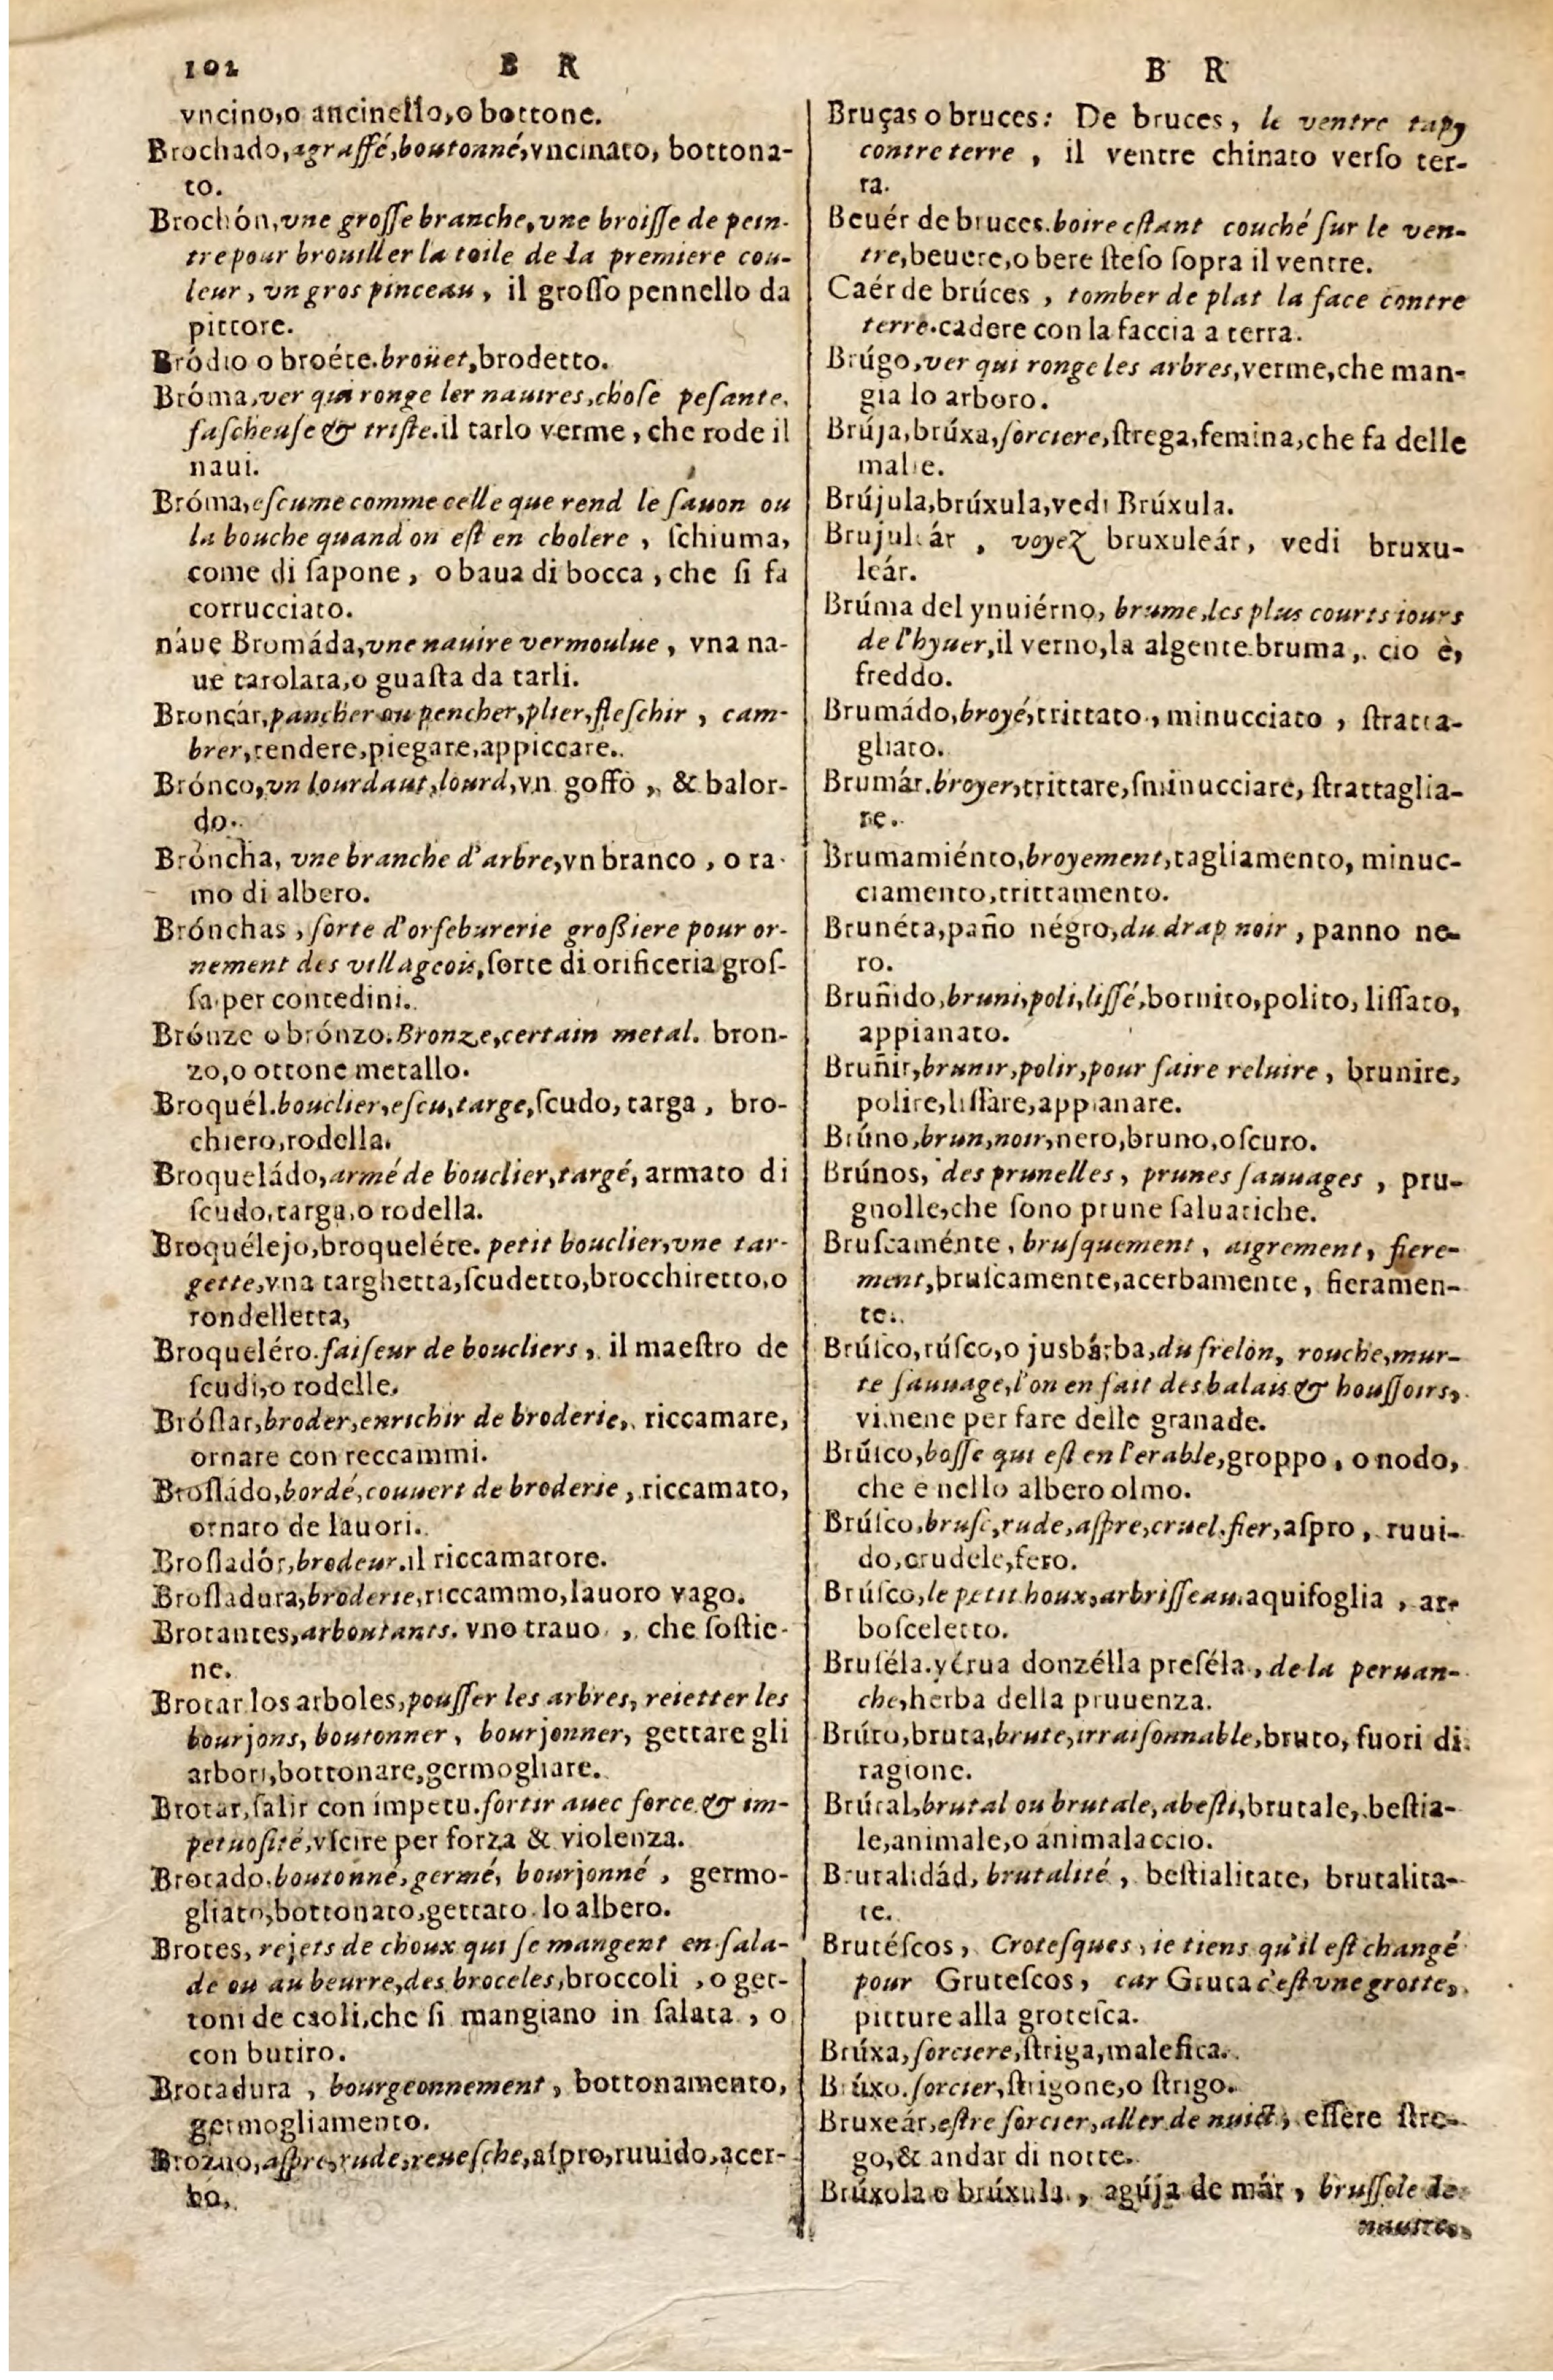 102 B R
vncino,o ancinello,o bottone.
Brochado,agraffé,boutonné,vncinato, bottona-
to.
Brochón,vne groſſe branche,vne broiſſe de pein-
tre pour brouiller la toile de la premiere cou-
leur, vn gros pinceau, il groſſo pennello da
pittore.
Bródio o broéte.broüet,brodetto.
Bróma,ver qui ronge ler nauires,choſe peſante,
faſcheuſe & triſte.il tarlo verme, che rode il
naui.
Bróma,eſcume comme celle que rend le ſauon ou
la bouche quand on eſt en cholere, ſchiuma,
come di ſapone, o baua di bocca, che ſi fa
corrucciato.
náue Bromáda,vne nauire vermoulue, vna na-
ue tarolata,o guaſta da tarli.
Broncár,pancher ou pencher,plier,fleſchir, cam-
brer,tendere,piegare,appiccare.
Brónco,vn lourdaut,lourd,vn goffo, & balor-
do.
Bróncha, vne branche d'arbre,vn branco, o ra-
mo di albero.
Brónchas, ſorte d'orfeburerie großiere pour or-
nement des villageois,ſorte di orificeria groſ-
ſa per contedini.
Brónze o brónzo.Bronze,certain metal. bron-
zo,o ottone metallo.
Broquél.bouclier,eſcu,targe,ſcudo, targa, bro-
chiero,rodella.
Broqueládo,armé de bouclier,targé, armato di
ſcudo,targa,o rodella.
Broquélejo,broqueléte. petit bouclier,vne tar-
gette,vna targhetta,ſcudetto,brocchiretto,o
rondelletta,
Broqueléro.faiſeur de boucliers, il maeſtro de
ſcudi,o rodelle.
Bróſlar,broder,enrichir de broderie, riccamare,
ornare con reccammi.
Broſládo,bordé,couuert de broderie, riccamato,
ornato de lauori.
Broſladór,brodeur.il riccamatore.
Broſladura,broderie,riccammo,lauoro vago.
Brotantes,arboutants. vno trauo, che ſoſtie-
ne.
Brotar los arboles,pouſſer les arbres, reietter les
bourjons, boutonner, bourjonner, gettare gli
arbori,bottonare,germogliare.
Brotar,ſalir con impetu.ſortir auec force & im-
petuoſité,vſcire per forza & violenza.
Brotado.boutonné,germé, bourjonné, germo-
gliato,bottonato,gettato lo albero.
Brotes, rejets de choux qui ſe mangent en ſala-
de ou au beurre,des broceles,broccoli, o get-
toni de caoli,che ſi mangiano in ſalata, o
con butiro.
Brotadura, bourgeonnement, bottonamento,
germogliamento.
Brozno,aſpre,rude,reueſche,aſpro,ruuido,acer-
bo.
B R
Bruças o bruces: De bruces, le ventre tapy
contre terre, il ventre chinato verſo ter-
ra.
Beuér de bruces.boire eſtant couché ſur le ven-
tre,beuere,o bere ſteſo ſopra il ventre.
Caér de brúces, tomber de plat la face contre
terre.cadere con la faccia a terra.
Brúgo,ver qui ronge les arbres,verme,che man-
gia lo arboro.
Brúja,brúxa,ſorciere,ſtrega,femina,che fa delle
malie.
Brújula,brúxula,vedi Brúxula.
Brujuleár, voyez bruxuleár, vedi bruxu-
leár.
Brúma del ynuiérno, brume,les plus courts iours
de l'hyuer,il verno,la algente bruma, cio è,
freddo.
Brumádo,broyé,trittato, minucciato, ſtratta-
gliato.
Brumár.broyer,trittare,ſminucciare, ſtrattaglia-
re.
Brumamiénto,broyement,tagliamento, minuc-
ciamento,trittamento.
Brunéta,paño négro,du drap noir, panno ne-
ro.
Bruñido,bruni,poli,liſſé,bornito,polito, liſſato,
appianato.
Bruñir,brunir,polir,pour faire reluire, brunire,
polire,liſſare,appianare.
Brúno,brun,noir,nero,bruno,oſcuro.
Brúnos, des prunelles, prunes ſauuages, pru-
gnolle,che ſono prune ſaluatiche.
Bruſcaménte, bruſquement, aigrement, fiere-
ment,bruſcamente,acerbamente, fieramen-
te.
Brúſco,rúſco,o jusbárba,du frelon, rouche,mur-
te ſauuage,l'on en fait des balais & houſſoirs,
vimene per fare delle granade.
Brúſco,boſſe qui eſt en l'erable,groppo, o nodo,
che e nello albero olmo.
Brúſco,bruſc,rude,aſpre,cruel.fier,aſpro, ruui-
do,crudele,fero.
Brúſco,le petit houx,arbriſſeau.aquifoglia, ar-
boſceletto.
Bruſéla.yérua donzélla preſéla, de la peruan-
che,herba della pruuenza.
Brúto,bruta,brute,irraiſonnable,bruto, fuori di
ragione.
Brútal,brutal ou brutale, abeſti,brutale, beſtia-
le,animale,o animalaccio.
Brutalidád, brutalité, beſtialitate, brutalita-
te.
Brutéſcos, Croteſques, ie tiens qu'il eſt changé
pour Gruteſcos, car Gruta c'eſt vne grotte,
pitture alla groteſca.
Brúxa,ſorciere,ſtriga,malefica.
Brúxo.ſorcier,ſtrigone,o ſtrigo.
Bruxeár,eſtre ſorcier,aller de nuict, eſſere ſtre-
go,& andar di notte.
Brúxola o brúxula, agúja de már, bruſſole de
nauire,